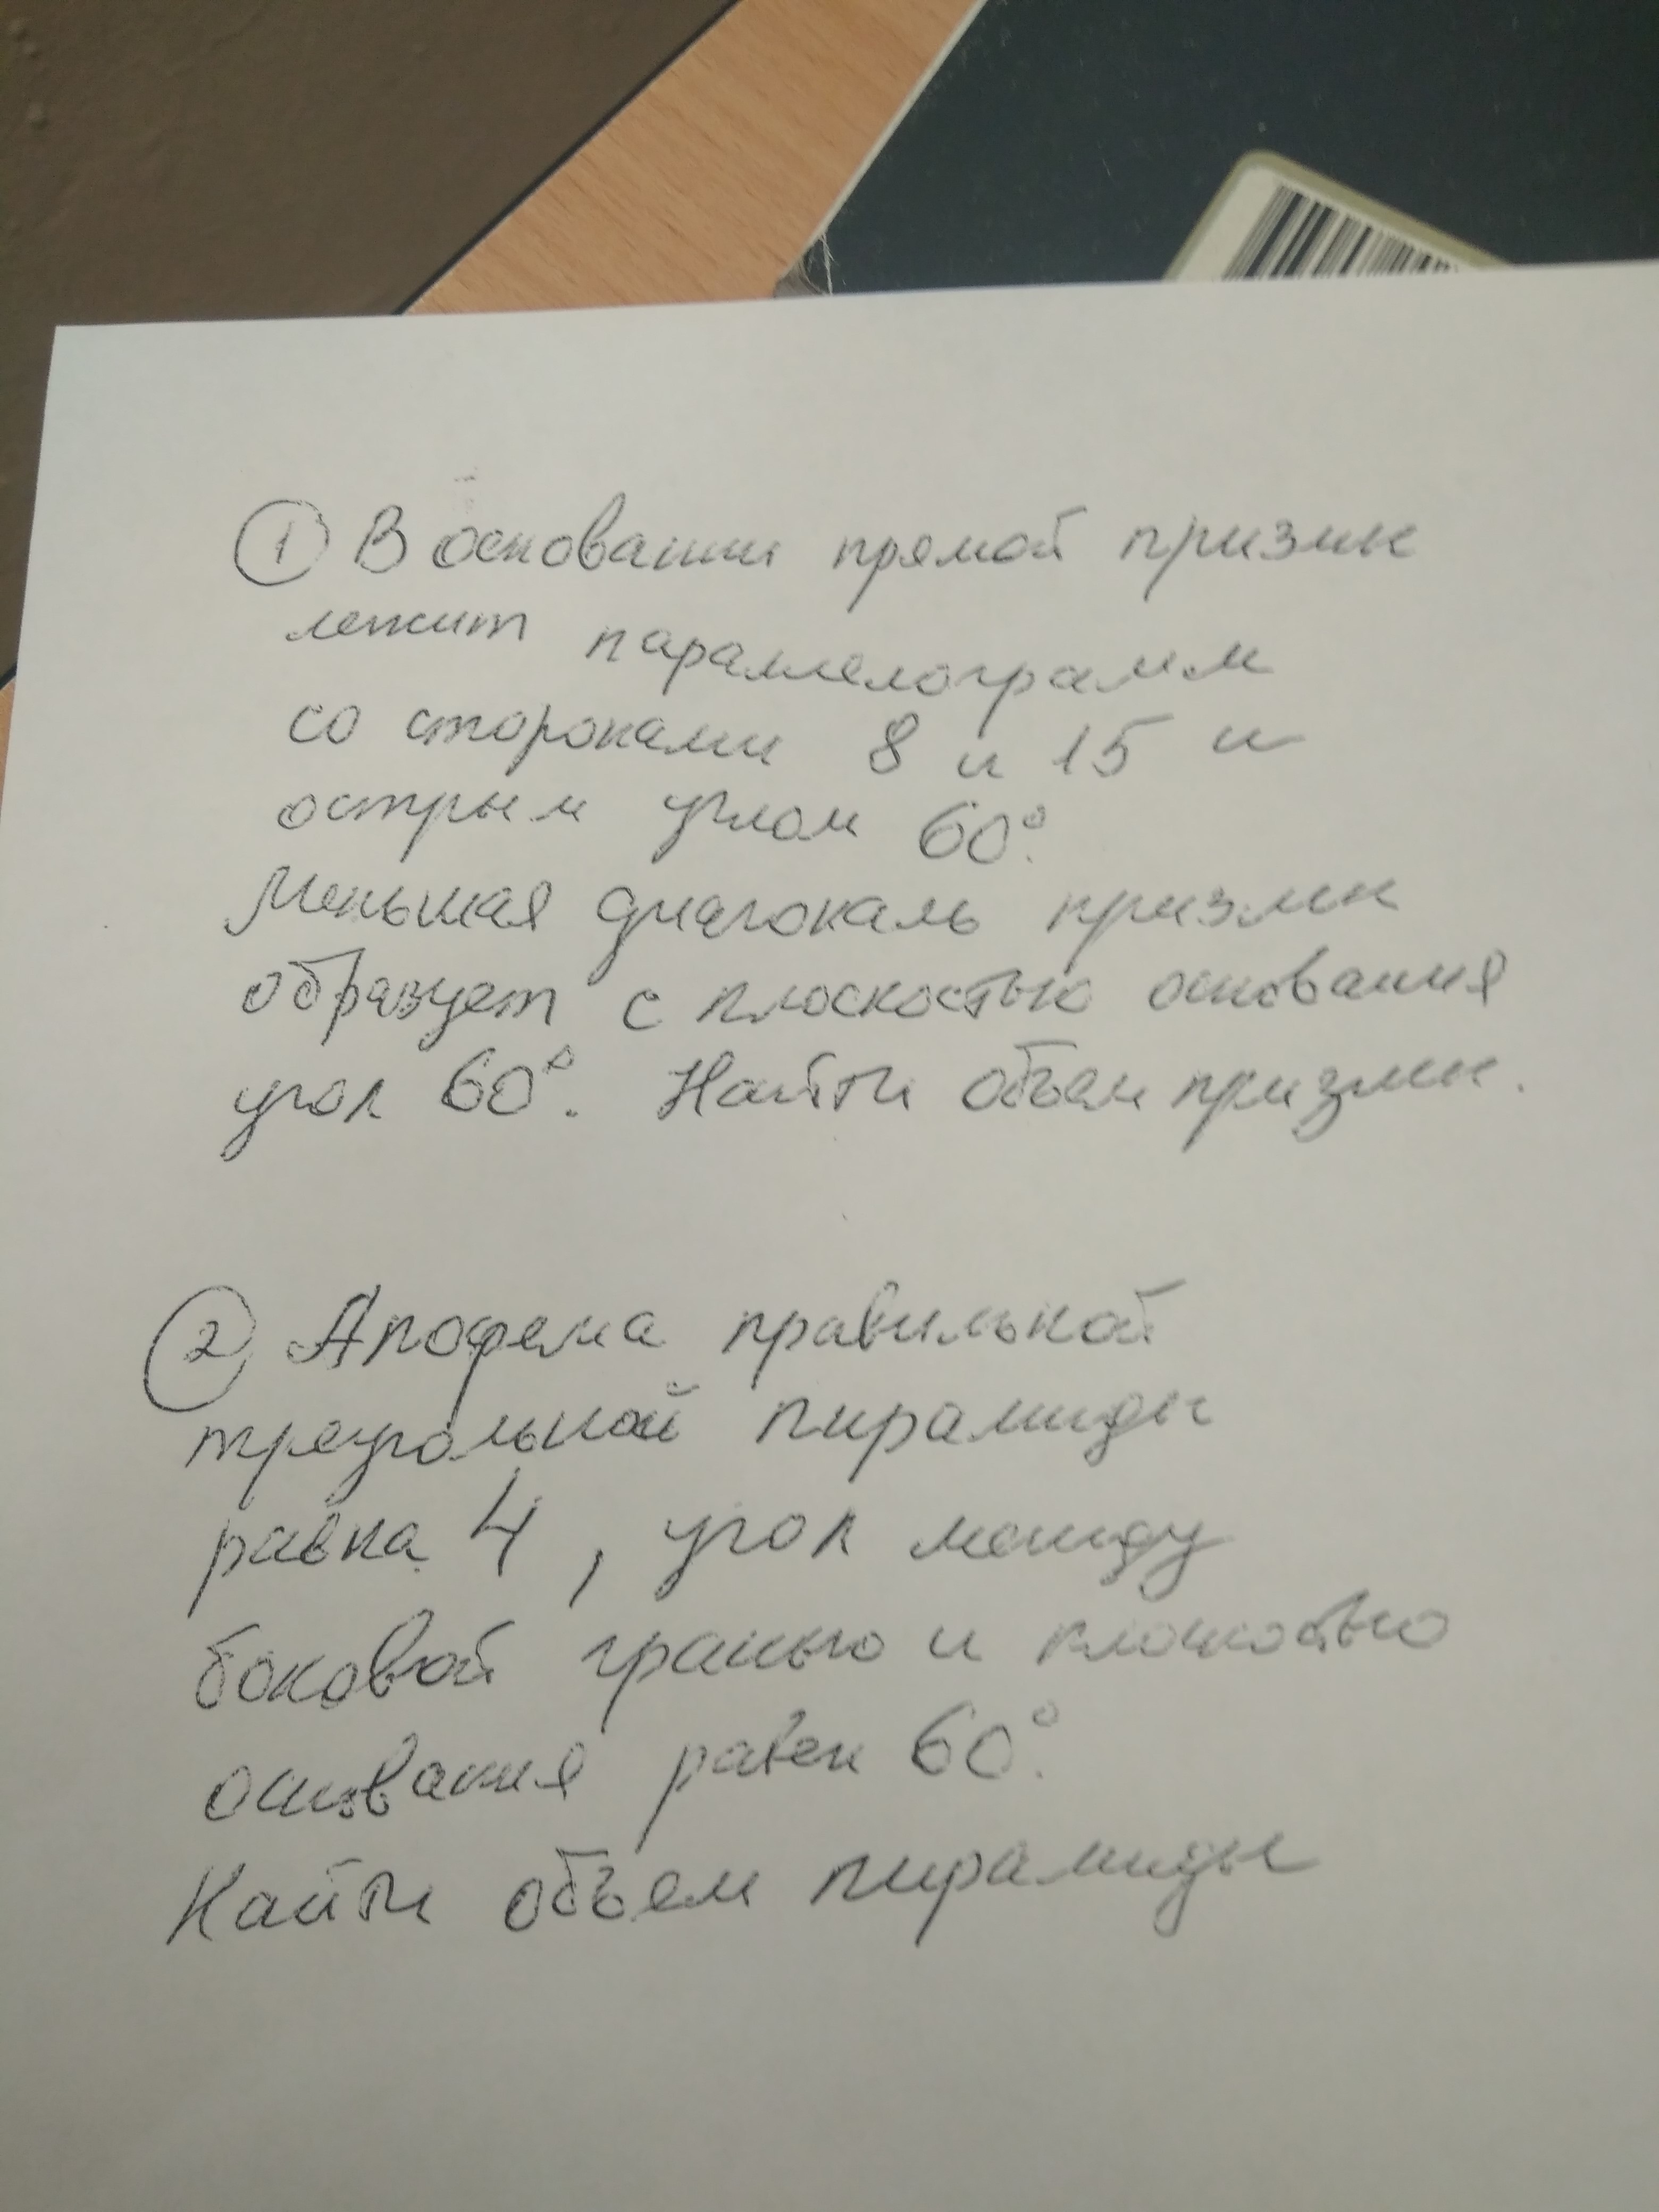 ① В основании прямой призмы
лежит параллелограмм
со сторонами 8 и 15 и
острым углом 60°.
Меньшая диагональ призмы
образует с плоскостью основания
угол 60°. Найти объем призмы.
② Апофема правильной
треугольной пирамиды
равна 4, угол между
боковой гранью и плоскостью
основания равен 60°.
Найти объем пирамиды